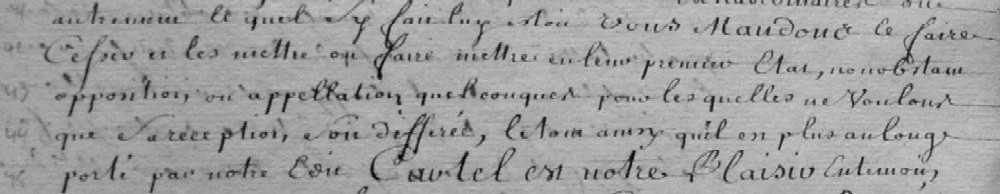 autrement le quel Sy fait luy etoit Vous Mandons le faire
Cesser et les mettre ou faire mettre en leur premier Etat, nonobstant
opposition, ou appellation quelconques pour lesquelles ne Voulons
que Sa reception, Soit differée, le tout ainsy quil en plus au long
porté par notre Edit Car tel est notre Plaisir